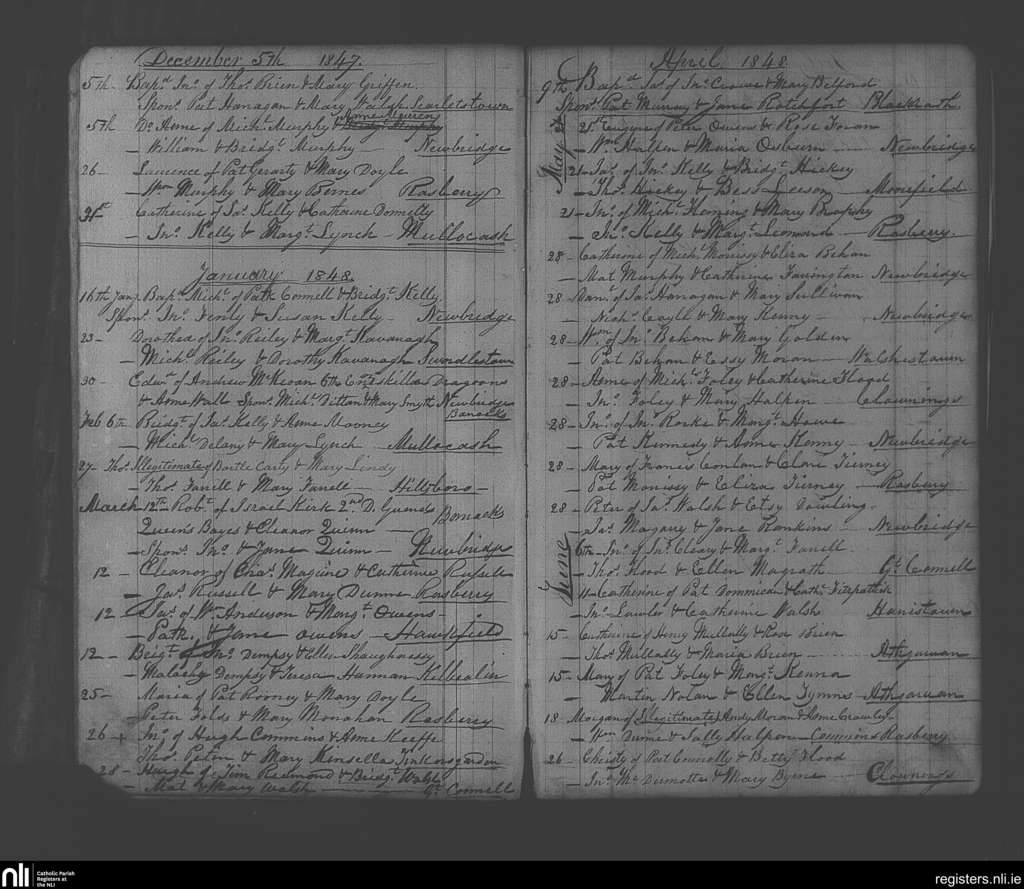 December 5th 1847.
5th - Bapd. Jno. of Thos. Brien & Mary Griffin
Spons. Pat Hanagan & Mary Walsh Scarletstown
5th Do. Anne of Michl. Murphy & Anne Mooney Bridgt. Murphy
- William & Bridgt. Murphy - Newbridge
26 - Laurence of Pat Gerarty & Mary Doyle
- Wm. Murphy & Mary Byrnes Rasberry
Catherine of Jas. Kelly & Catharine Donnelly
- Jno. Kelly & Margt. Lynch - Mullocash
January 1848.
16th Jany. Bapt. Michl. of Patk. Connell & Bridgt. Kelly
Spons. Jno. Fenly & Susan Kelly - Newbridge
23 - Dorothea of Jno. Reiley & Margt. Kavanagh
- Michl. Reiley & Dorothy Kavanagh Swordlestown
30 - Edwd. of Andrew McKeoan 6th Enniskillen Dragoons
& Anne Wall Spons. Michl. Dittan & Mary Smyth Newbridge
Barracks
Feb 6th Bridgt. of Jas. Kelly & Anne Mooney
- Michl. Delany & Mary Lynch Mullocash
27 - Thos. Illegitimate of Bartle Carty & Mary Lindy
- Thos. Farrell & Mary Farrell - Hillsboro -
March 12th - Robt. of Israel Kirk 2nd D. Guards
Queens Bayes & Eleanor Quinn - Barracks
- Spons. Jno. & Jane Quinn - Newbridge
12 - Eleanor of Chas. Maguire & Catherine Russell
- Jas. Russell & Mary Dunne Rasberry
12 - Jas. of Wm. Anderson & Margt. Owens -
- Patk. & Jane Owens - Hawkfield
12 - Bridgt. of Jno. Dempsy & Ellen Shaughnessy
- Malachy Dempsy & Teresa Hannan Killeolin
25 - Maria of Pat Rooney & Mary Doyle
- Peter Folds & Mary Monahan Rasberry
26 - Jno. of Hugh Commins & Anne Keeffe
Thos. & Mary Kinsella Jinkinsgarden
28 - Hugh of Jim Redmond & Bridgt. Walsh
- Mat & Mary Walsh - Gt. Connell
April 1848
9th Bapd. Jas. of Jno. Crowe & Mary Belford
Spons. Pat Murray & Jane Rotchfort Blackrath
May 21 21st Eugene of Peter Owens & Rose Foran
- Wm. Halpen & Maria Osburn - Newbridge
21 - Jas. of Jno. Kelly & Bridgt. Hickey
- Thos. Hickey & Bess Leeson - Moorfield
21 - Jno. of Michl. Fleming & Mary Brophy
- Jno. Kelly & Margt. Lemond - Rasberry.
28 - Catherine of Michl. Monissy & Eliza Behan
- Mat Murphy & Catherine Farrington Newbridge
28 - Danl. of Jas. Hanagan & Mary Sullivan
- Nichs. Coyll & Mary Kenny - Newbridge
28 - Wm. of Jno. Behan & Mary Golden
- Pat Behan & Essy Moran - Wn. Christawn
28 - Anne of Michl. Foley & Catherine Flood
- Jno. Foley & Mary Halpen - Clownings
28 - Jno. of Jno. Rorke & Margt. Howe
- Pat Kennedy & Anne Kenny - Newbridge
28 - Mary of Francis Conlan & Clare Tierney
- Pat Monissy & Eliza Tierney - Rasberry
28 - Peter of Jas. Walsh & Etsy Dowling.
- Jas. Magane & Jane Rankins - Newbridge
June 6th - Jno. of Jas. Cleary & Margt. Farrell.
- Thos. Flood & Ellen Magrath - Gt. Connell
11 - Catherine of Pat Dommican & Cath. Fitzpatrick
- Jno. Lawler & Catherine Walsh Harristown
15 - Catherine of Henry Mullally & Rose Brien
- Thos. Mullally & Maria Brien - Athgarvan
15 - Mary of Pat Foley & Margt. Kenna
- Martin Nolan & Ellen Tymns - Athgarvan
18 Morgan of (Illegitimate) Andy Moran & Anne Crawley -
- Wm. Dunne & Sally Halpen - Commons Rasberry
26 - Christy of Pat Connolly & Betty Flood
- Jno. McDermotte & Mary Byrne - Clownings
nli
Catholic Parish
Registers at
the NLI
registers.nli.ie